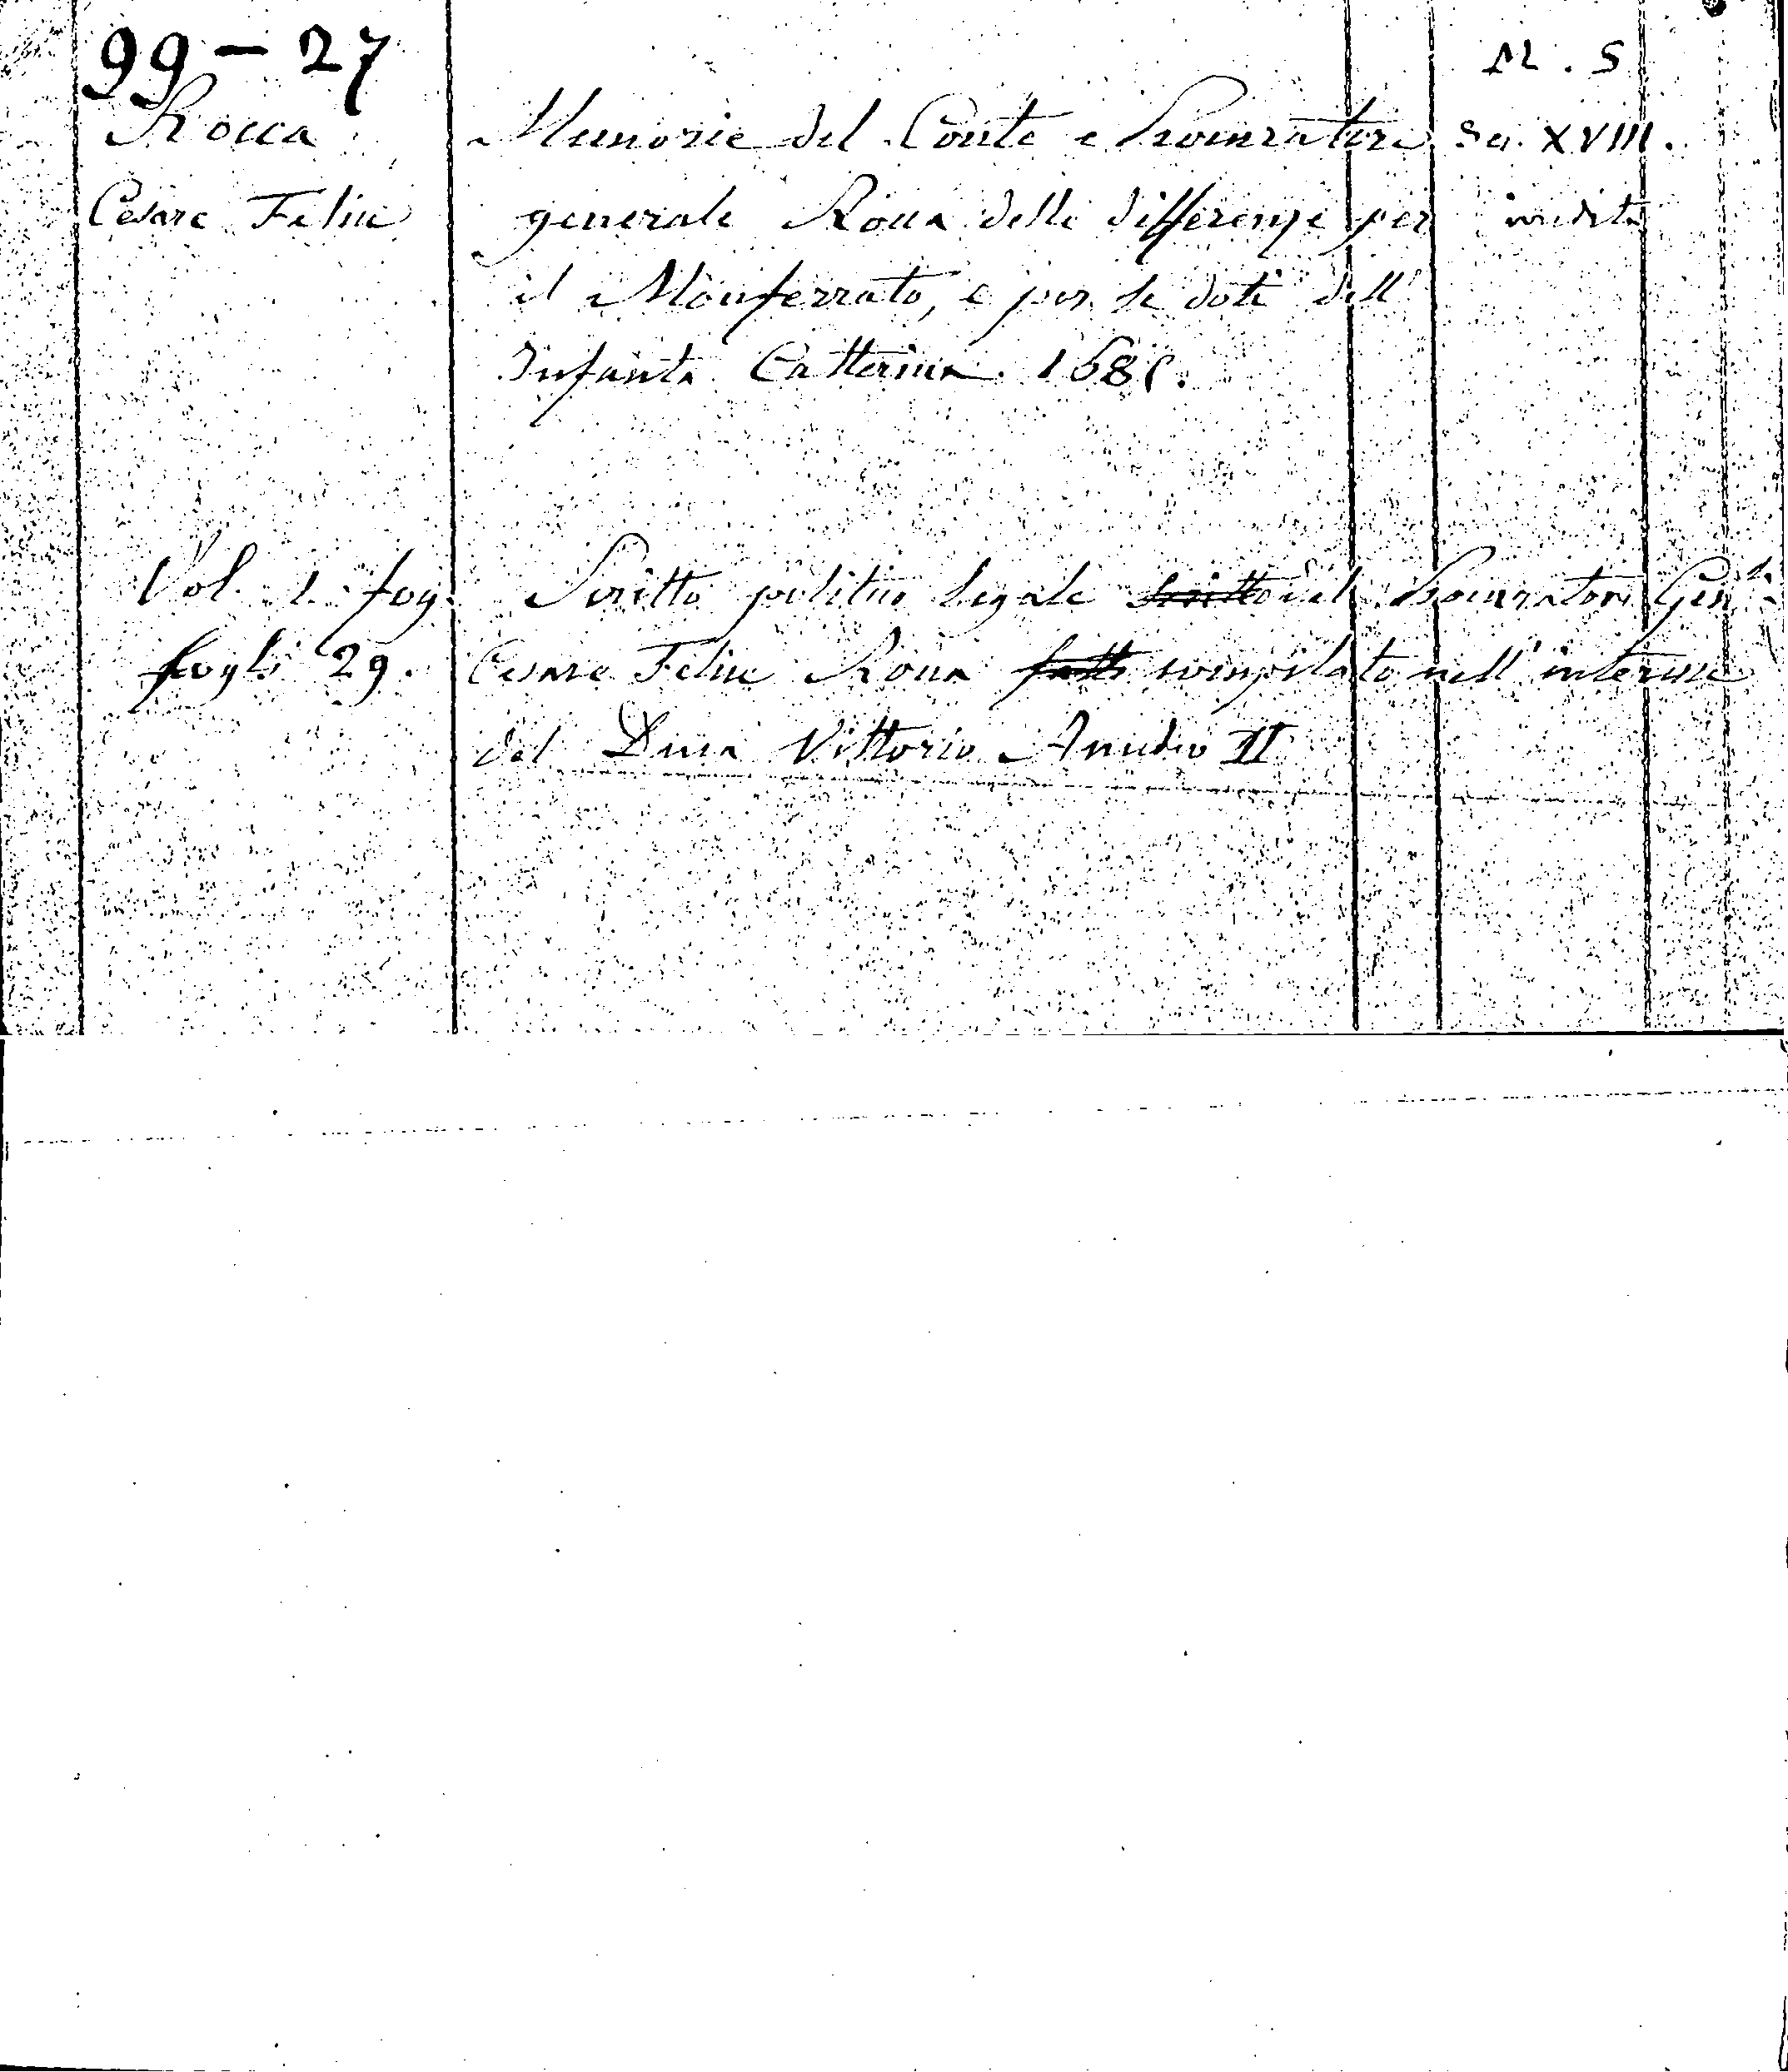 99 - 27
M. S.
Rocca
Cesare Felice
Memorie del Conte e Procuratore
generale Rocca delle differenze per
il Monferrato, e per le doti dell'
Infanta Catterina.
Sec. XVIII.
inedito
Vol. 1. fog.
fogli 29.
Scritto politico legale del Procuratore Gen.le
Cesare Felice Rocca compilato nell'interesse
del Duca Vittorio Amedeo II